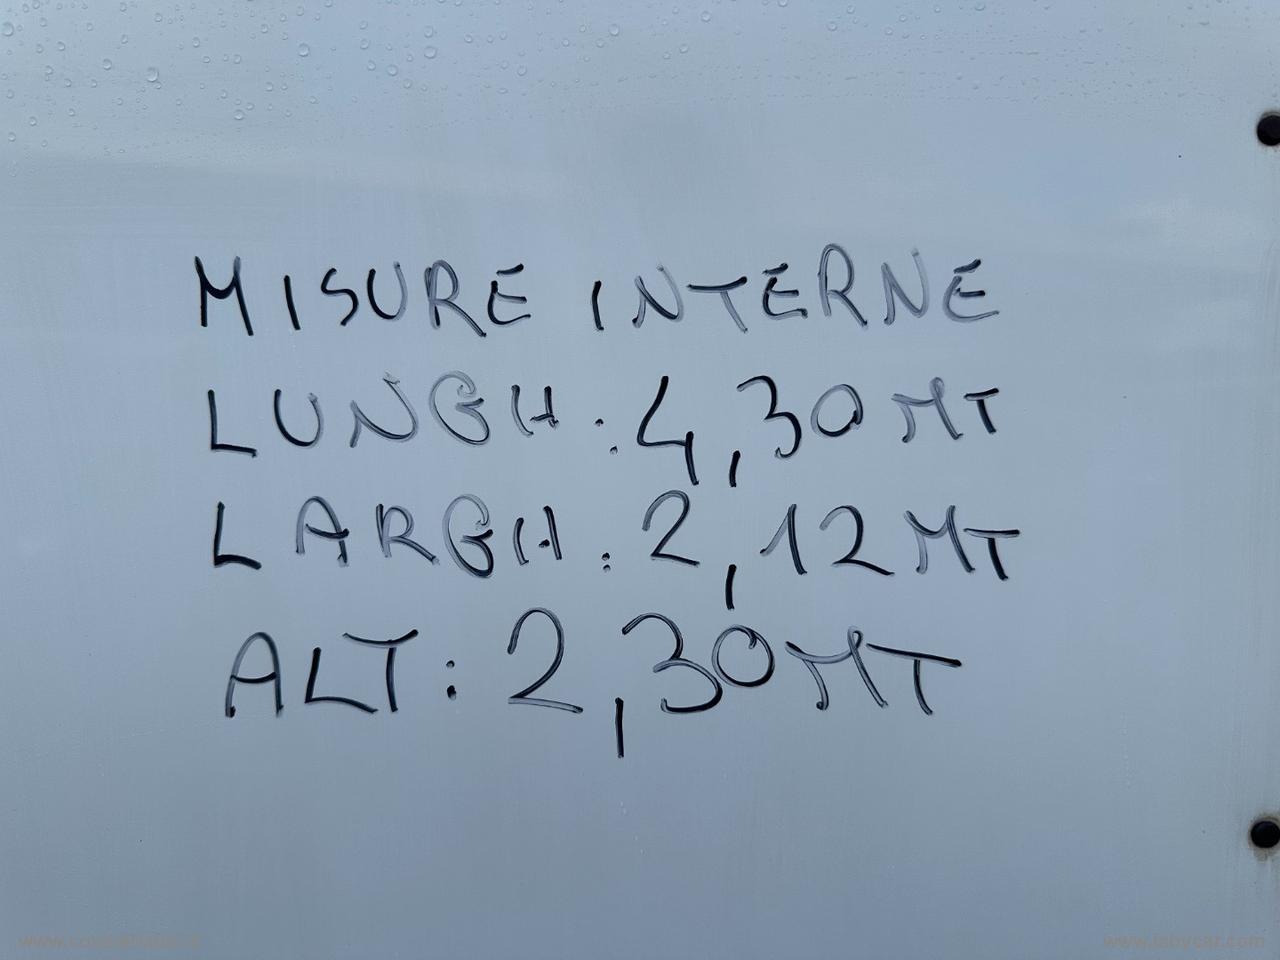 MISURE INTERNE
LUNGH: 4,30 MT
LARGH: 2,12 MT
ALT: 2,30 MT
www.labycar.com